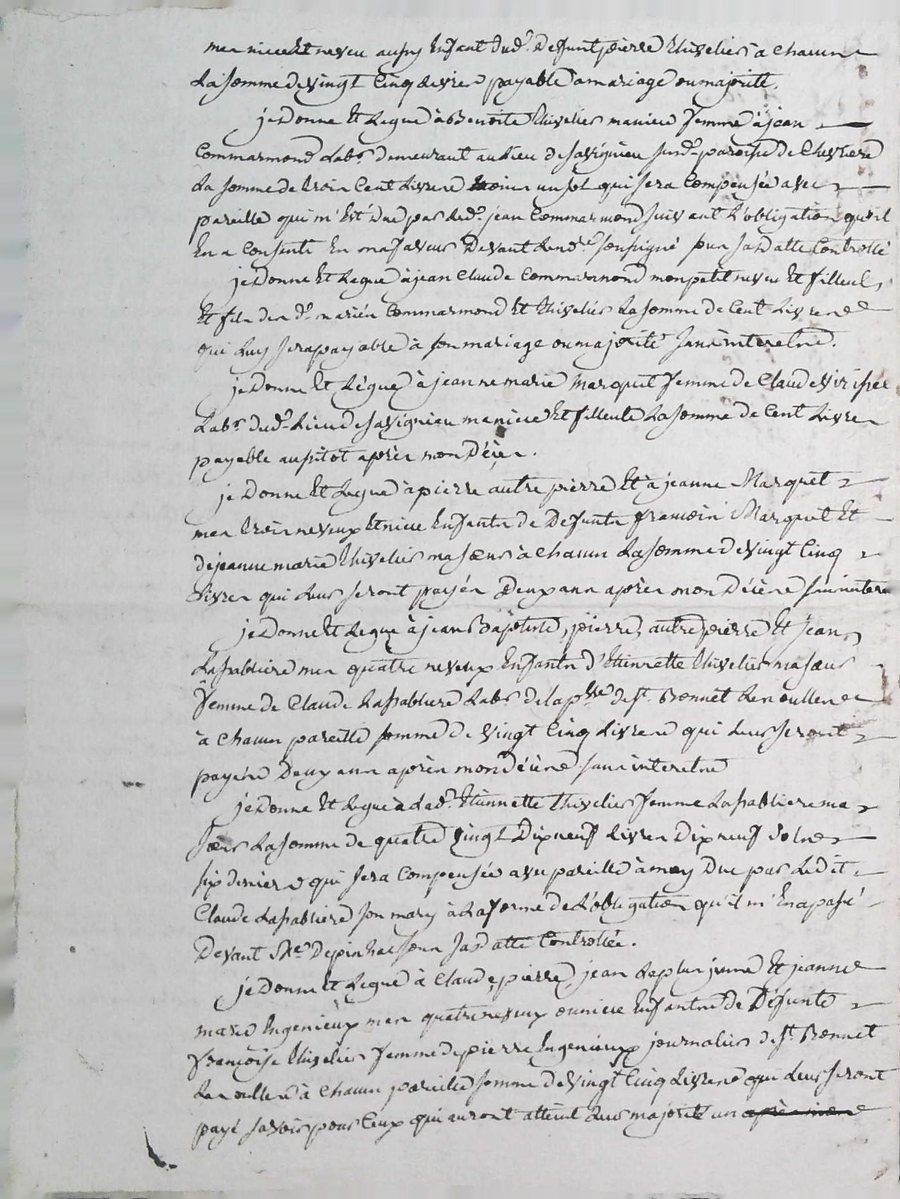 mes niece Et neveu aussy Enfant dud.t Defunt pierre Thivelier à chacun
La somme de vingt Cinq Livres payable a mariage ou majorité.
je Donne Et Legue à Benoite Thivelier ma niece femme à jean
Commarmond Lab.r demeurant au Lieu de Savignieu susd.t paroisse de Chevriere
La somme de trois Cent Livres moins un sol qui sera Compensée avec
pareille qui m'Est düe par Led.t jean Commarmond suivant L'obligation qu'il
En a Consenti En ma faveur Devant Le no.re soussigné sous sa Datte Controllé
je donne Et Legue à jean Claude Commarmond mon petit neveu Et filleul,
Et fils des d.t mariés Commarmond Et Thivelier La somme de Cent Livres
qui Luy sera payable à son mariage ou majorité sans interets.
je Donne Et Légue à jeanne marie Marquet femme de Claude
Lab.r dud.t Lieu de Savignieu ma niece Et filleule La somme de Cent Livres
payable aussitot après mon Décès.
je Donne Et Legue à pierre autre pierre Et à jeanne Marquet
mes trois neveux Et niece Enfants de Defunts francois Marquet Et
de jeanne marie Thivelier ma sœur à chacun La somme de vingt Cinq
Livres qui Leurs seront payés Deux ans après mon Décès sans interets
je Donne Et Legue à jean Baptiste, pierre, autre pierre Et Jean,
Lasabliere mes quatre neveux Enfants d'Etiennette Thivelier ma sœur
femme de Claude Lasabliere Lab.r de la p.sse de S.t Bonnet Les oulles
à chacun pareille somme de vingt Cinq Livres qui Leurs seront
payés Deux ans après mon décès sans interets
je Donne Et Legue à Lad.t Etiennette Thivelier femme Lasabliere ma
sœur La somme de quatre vingt Dix neuf Livres Dix neuf sols
six deniers qui sera Compensée avec pareille à moy Due par Ledit
Claude Lasabliere son mary à La forme de L'obligation qu'il m'En a passé
Devant M.e Depinhac sous sa Datte Controllée.
je Donne Et Legue à Claude pierre, jean Le plus jeune Et jeanne
marie Ingenieux mes quatre neveux ou niece Enfants de Défunte
françoise Thivelier femme de pierre Ingenieux journalier de S.t Bonnet
Les oulles à chacun pareille somme de vingt Cinq Livres qui Leurs seront
payé savoir pour Ceux qui auront atteint Leurs majorité un après mon